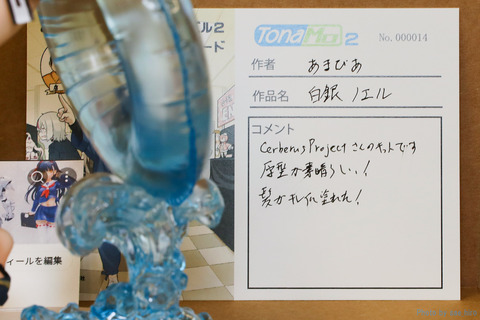 TonaMo 2
No.000014
作者 あまびあ
作品名 白銀ノエル
コメント
Cerberus Projectさんのキットです
原型が素晴らしい!
髪がキレイに塗れた!
ル2
ード
ィールを編集